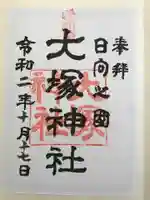 奉拝
日向之國
大塚神社
令和二年十月十七日
大塚
神社